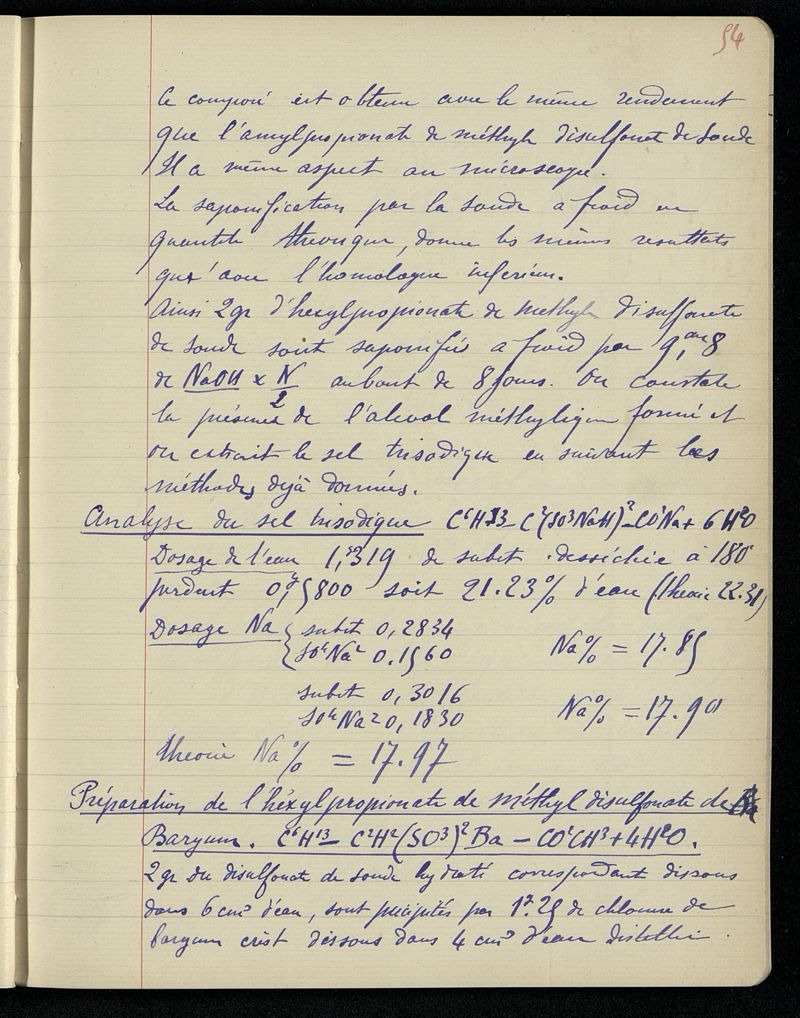 54
Ce composé est obtenu avec le même rendement
que l'amylpropionate de méthyle disulfonate de soude
Il a même aspect au microscope.
La saponification par la soude à froid en
quantité théorique, donne les mêmes résultats
qu'avec l'homologue inférieur.
Ainsi 2gr d'hexylpropionate de méthyle disulfonate
de soude sont saponifiés a froid par 9,cm3 8
de NaOH x N/2 au bout de 8 jours. On constate
la présence de l'alcool méthylique formé et
on extrait le sel trisodique en suivant les
méthodes déjà données.
Analyse du sel trisodique C⁶H13– C²(SO³NaH)²–CO²Na + 6 H²O
Dosage de l'eau 1,gr319 de subst. desséchée à 180°
perdent 0,gr2800 soit 21.23% d'eau (théorie 22.31)
Dosage Na { subst 0,2834
SO⁴Na² 0.1560 Na% = 17.85
subst 0,3016
SO⁴Na² 0,1830 Na% = 17.90
théorie Na% = 17.97
Préparation de l'héxylpropionate de méthyl disulfonate de
Baryum. C⁶H¹³– C²H²(SO³)²Ba – CO²CH³ + 4H²O.
2gr du disulfonate de soude hydraté correspondant dissous
dans 6 cm³ d'eau, sont précipités par 1gr.25 de chlorure de
baryum crist dissous dans 4 cm³ d'eau distillée.